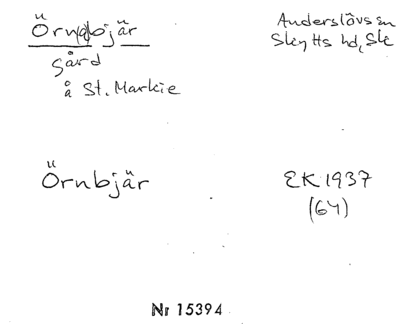 Örnabjär
Anderslövs sn
Skytts hd, Sk
gård
å St. Markie
Örnbjär
EK 1937
(64)
Nr 15394